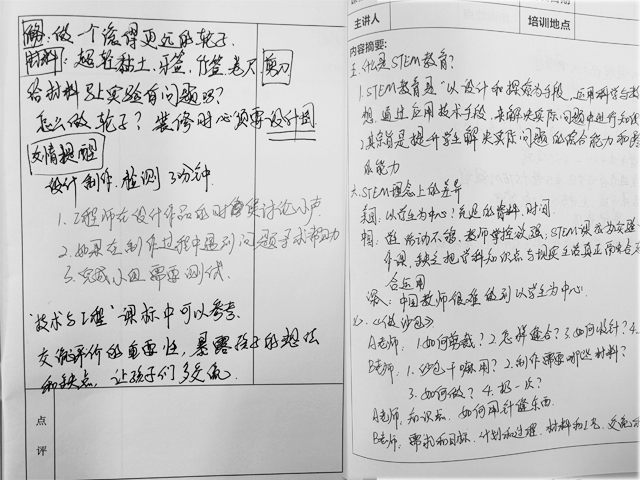 做一个滚得更远的轮子.
材料: 超轻黏土, 牙签, 竹签, 卷尺 剪刀
给材料 问题吗?
怎么做轮子? 装修时必须要设计图
友情提醒
设计制作, 检测 3分钟.
1. 工程师在设计作品的时候讨论小声
2. 如果在制作过程中遇到问题寻求帮助
3. 完成小组需要测试.
"技术与工程"课标中可以参考
交流评价的重要性, 暴露孩子的想法
和缺点, 让孩子们多交流.
点
评
主讲人
培训地点
内容摘要:
五. 什么是STEM教育?
1. STEM教育是"以设计和探究为手段, 运用科学与数
想, 通过应用技术手段, 来解决实际问题中进行
2. 其宗旨是提升学生解决实际问题的综合能力和
的能力
六. STEM理念上的差异
美国: 以学生为中心, 充足的资料, 时间.
中国: 活动不够, 教师掌控欲强, STEM误认为实操
作课, 缺乏把学科知识点与现实生活真正结合
合运用
深入: 中国教师很难做到以学生为中心.
七. 《做沙包》
A老师: 1. 如何剪裁? 2. 怎样缝合? 3. 如何收针? 4.
B老师: 1. 沙包干嘛用? 2. 制作需要哪些材料?
3. 如何做? 4. 扔一扔?
A老师: 知识点. 如何用针缝东西.
B老师: 需求和目标. 计划和过程. 材料和工具. 交流